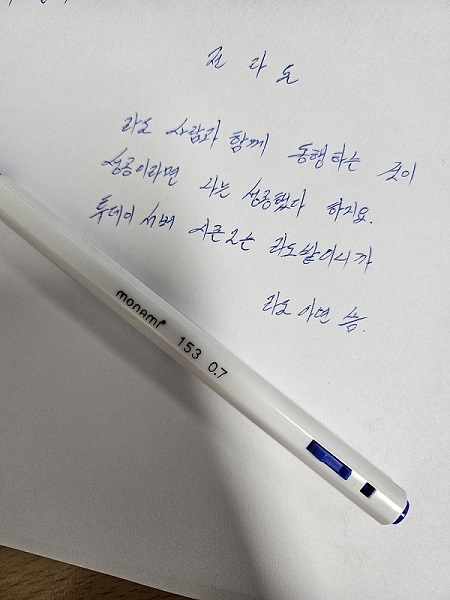 전 라 도
라도 사람과 함께 동행하는 것이
성공이라면 나는 성공했다 하지요.
투데이 서버 시즌2는 라도밭이니까
라도 아면 씀.
monami 153 0.7